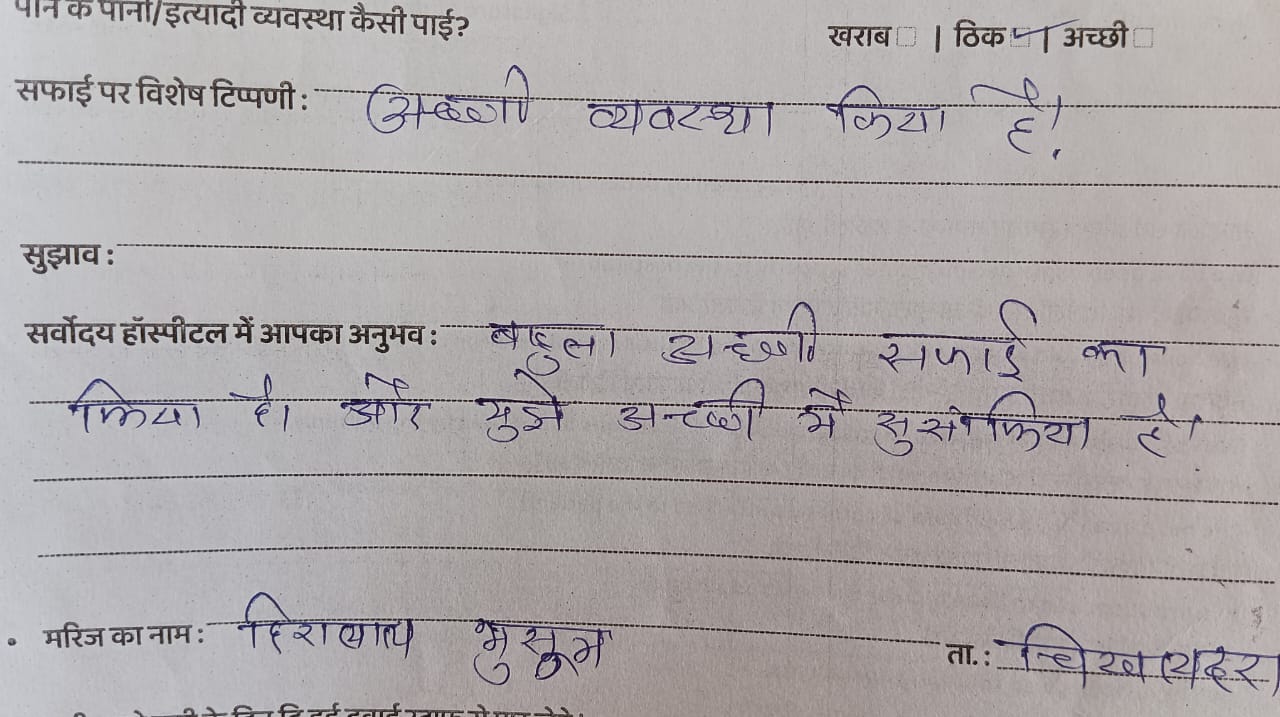 पीने के पानी/इत्यादी व्यवस्था कैसी पाई? खराब □ | ठिक □ | अच्छी □
सफाई पर विशेष टिप्पणी : अच्छी व्यवस्था किया है।
सुझाव :
सर्वोदय हॉस्पीटल में आपका अनुभव : बहुत अच्छी सफाई का
किया है। और मुझे अच्छी मै किया है।
मरिज का नाम :
ता. :